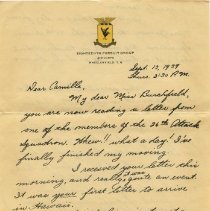 EIGHTEENTH PURSUIT GROUP
WHEELER FIELD, T. H.
Sept. 12, 1939
Tues. 3:30 P.M.
Dear Camille,
My dear Miss Burchfield,
you are now reading a letter from
one of the members of the 26th Attack
Squadron. Whew!! what a day! I've
finally finished my moving.
I received your letter this
morning, and really, you're an event.
It was your first letter to arrive
in Hawaii.